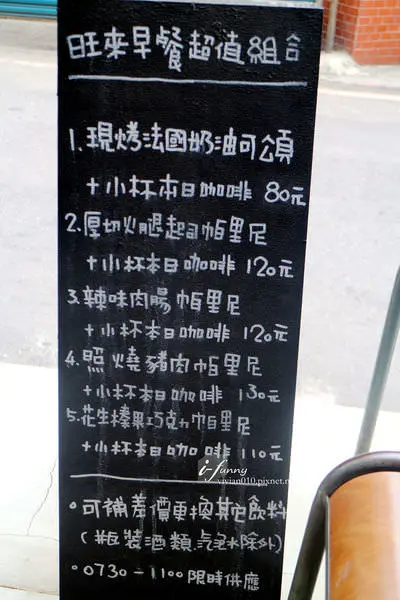 旺來早餐超值組合
1. 現烤法國奶油可頌
+小杯本日咖啡 80元
2. 厚切火腿起司帕里尼
+小杯本日咖啡 120元
3. 辣味肉腸帕里尼
+小杯本日咖啡 120元
4. 照燒豬肉帕里尼
+小杯本日咖啡 130元
5. 花生榛果巧克力帕里尼
+小杯本日咖啡 110元
i-funny
vivian010.pixnet.n
。可補差價更換其它飲料
(瓶裝酒類.汽泡水除外)
。0730-1100限時供應